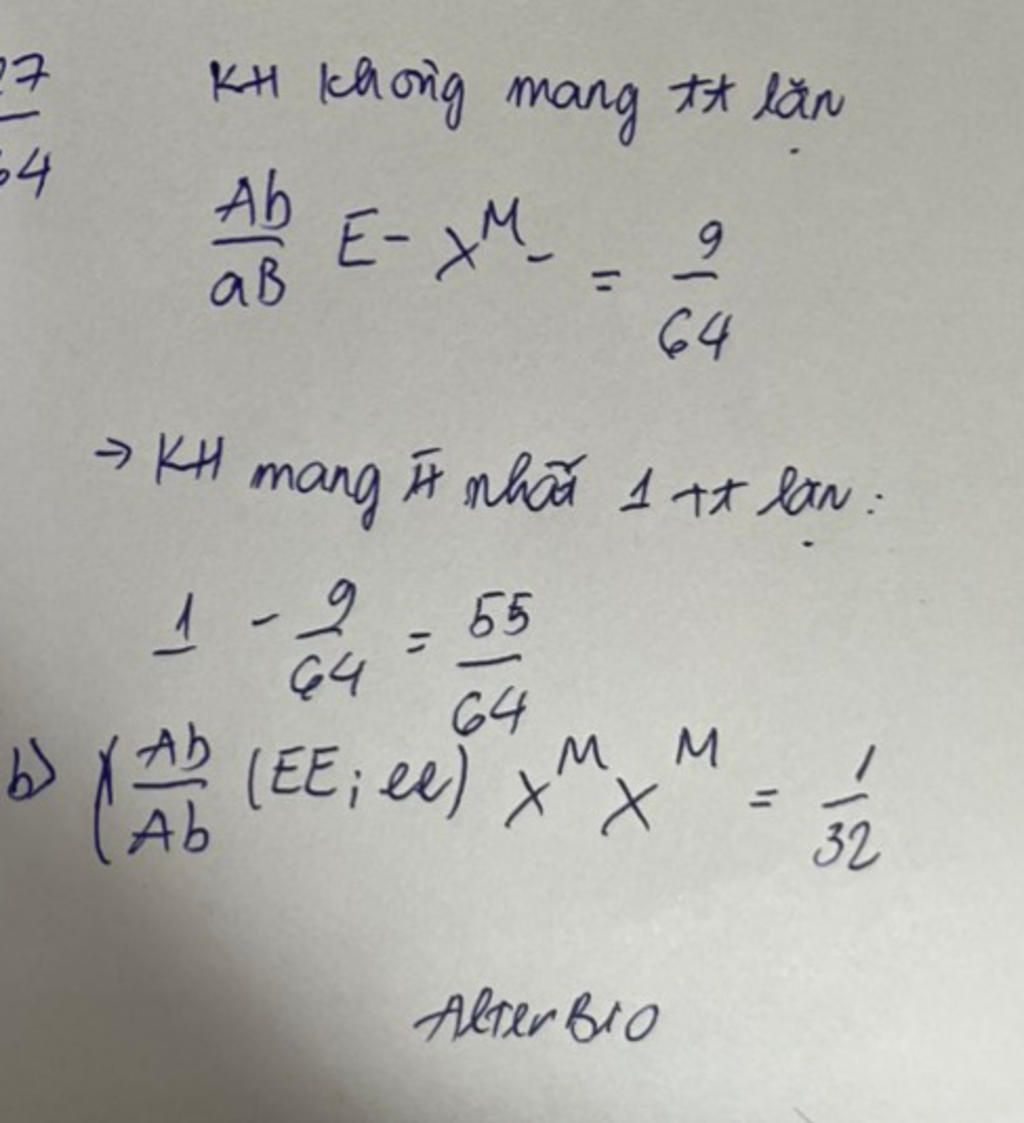 27
64
KH không mang tt lặn
Ab/aB E- X^M- = 9/64
→ KH mang ít nhất 1 tt lặn :
1 - 9/64 = 55/64
b) (Ab/Ab (EE; ee) X^M X^M = 1/32
AlterBio